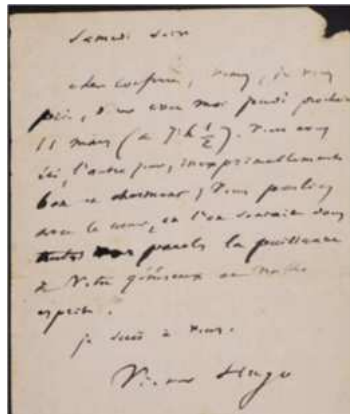 Samedi soir
cher confrère, venez, je vous
prie, dîner avec moi jeudi prochain
11 mars (à 7 h 1/2). Vous avez
été, l'autre jour, inexprimablement
bon et charmant; vous parliez
avec le cœur, et l'on sentait dans
toutes vos paroles la puissance
de votre généreux et noble
esprit.
je suis à vous.
Victor Hugo